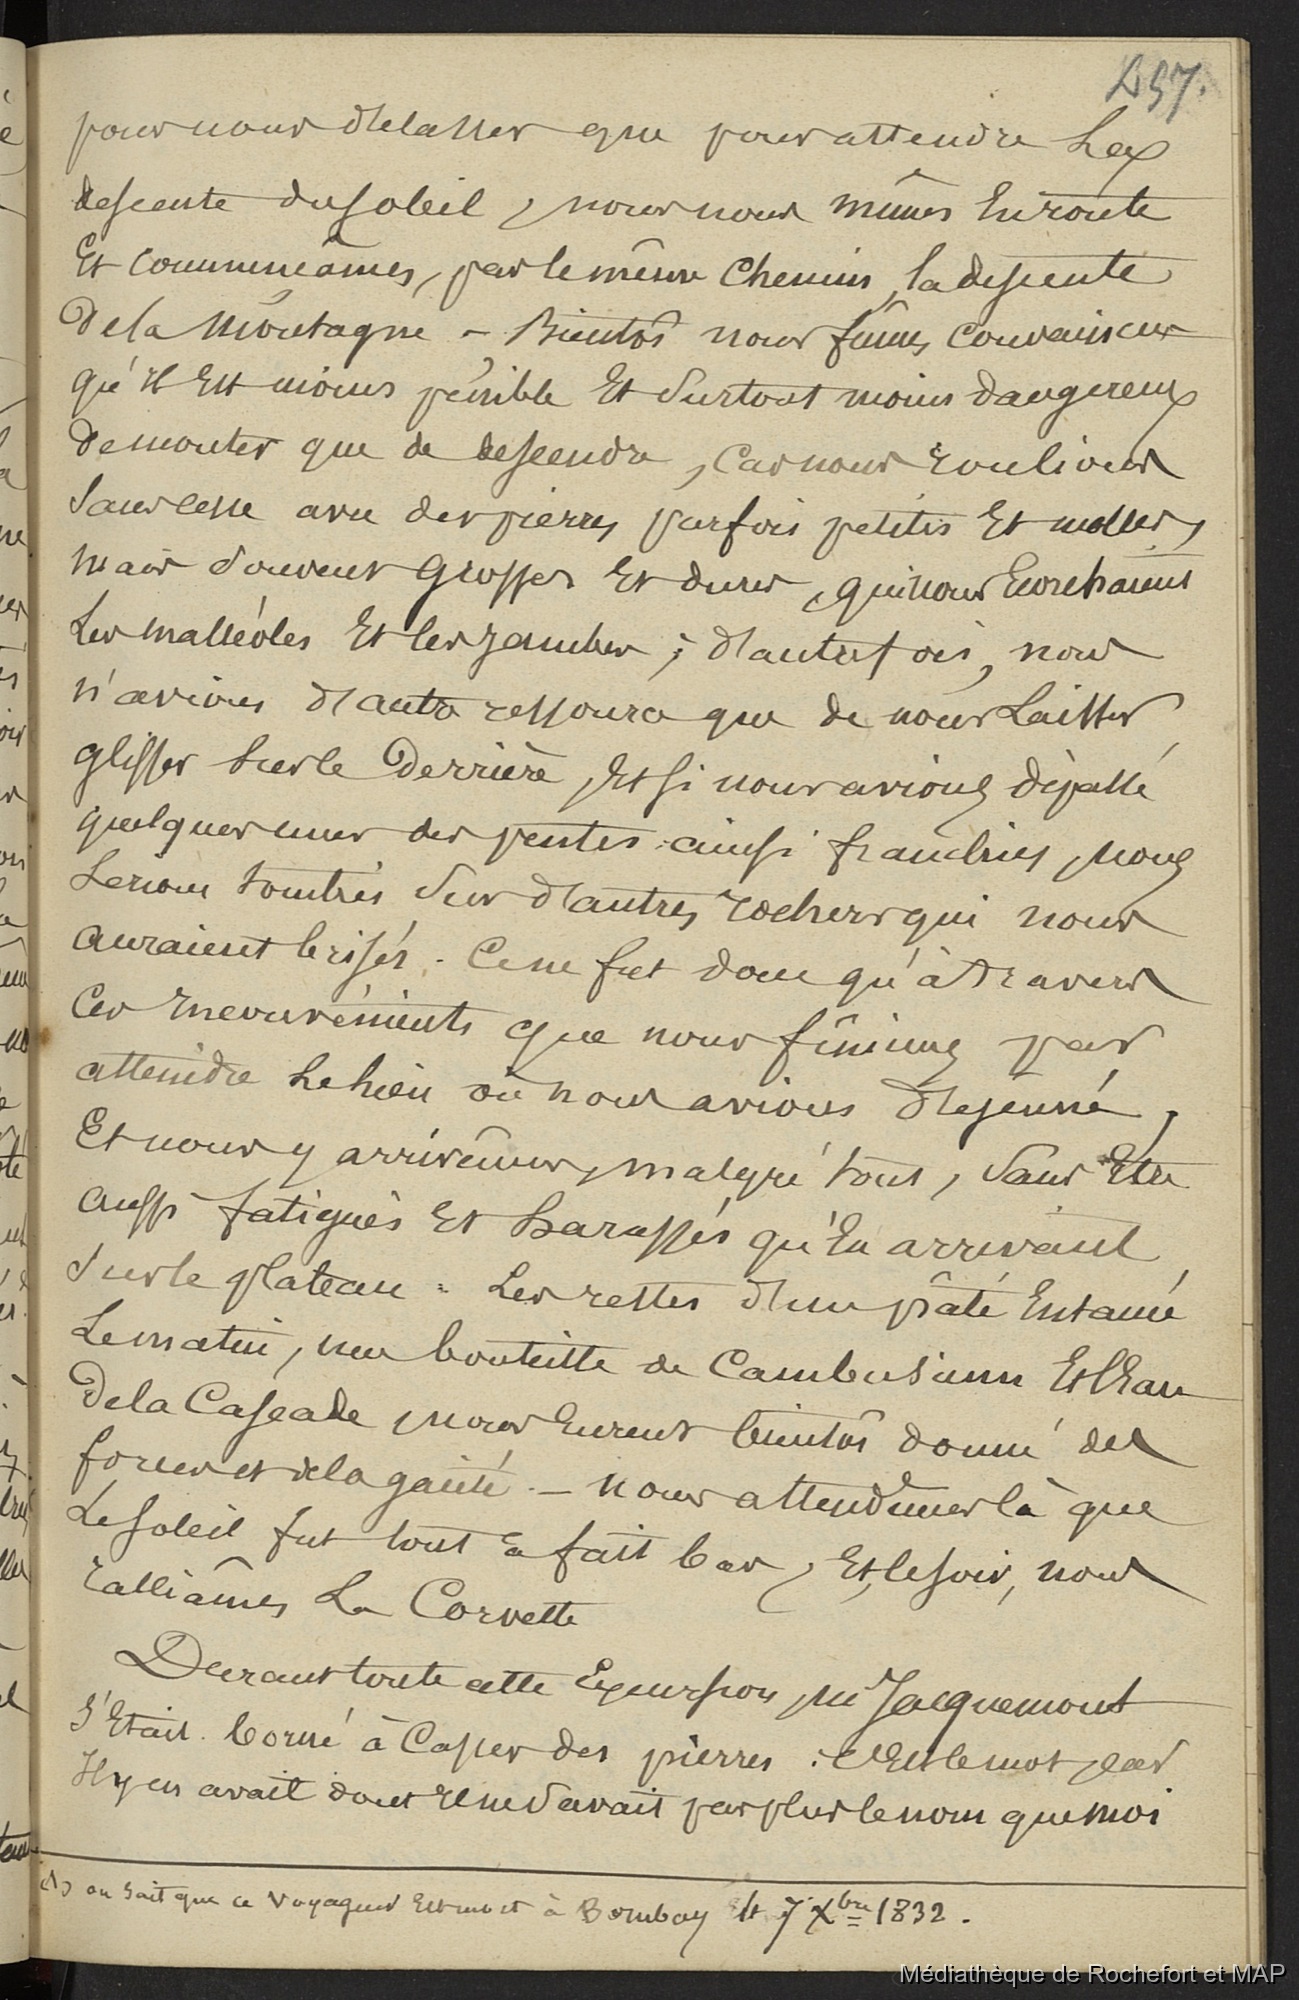 157.
pour nous délasser que pour attendre la
descente du soleil, nous nous mîmes En route
Et commençâmes, par le même Chemin, la descente
De la Montagne – Bientôt nous fûmes convaincus
qu'Il Est moins pénible Et Surtout moins dangereux
De monter que de descendre, Car nous roulions
Sans cesse avec des pierres parfois petites Et molles,
mais souvent grosses Et dures, qui nous Ecorchaient
Les malléoles Et les jambes ; d'autres fois, nous
n'avions d'autre ressource que de nous Laisser
glisser sur le Derrière, Et si nous avions dépassé
quelques unes des pentes ainsi franchies, nous
Serions tombés Sur d'autres rochers qui nous
auraient brisés. Ce ne fut donc qu'à travers
Ces que nous finîmes par
atteindre Le lieu où nous avions déjeuné,
Et nous y arrivâmes, malgré tout, Sans Etre
aussi fatigués Et harassés qu'En arrivant
Sur le plateau. Les restes d'un pâté Entamé
Le matin, une bouteille de Et l'Eau
De la Cascade, nous Eurent bientôt donné des
forces et de la gaieté. – Nous attendîmes là que
Le soleil fut tout à fait bas, Et, le soir, nous
ralliâmes La Corvette
Durant toute cette Excursion, Mr Jacquemont
S'Etait borné à Casser des pierres : C'Est le mot, car
Il y en avait dont Il ne Savait pas plus le nom que moi
(1) on Sait que ce Voyageur Est mort à Bombay le 7 Xbre 1832.
Médiathèque de Rochefort et MAP